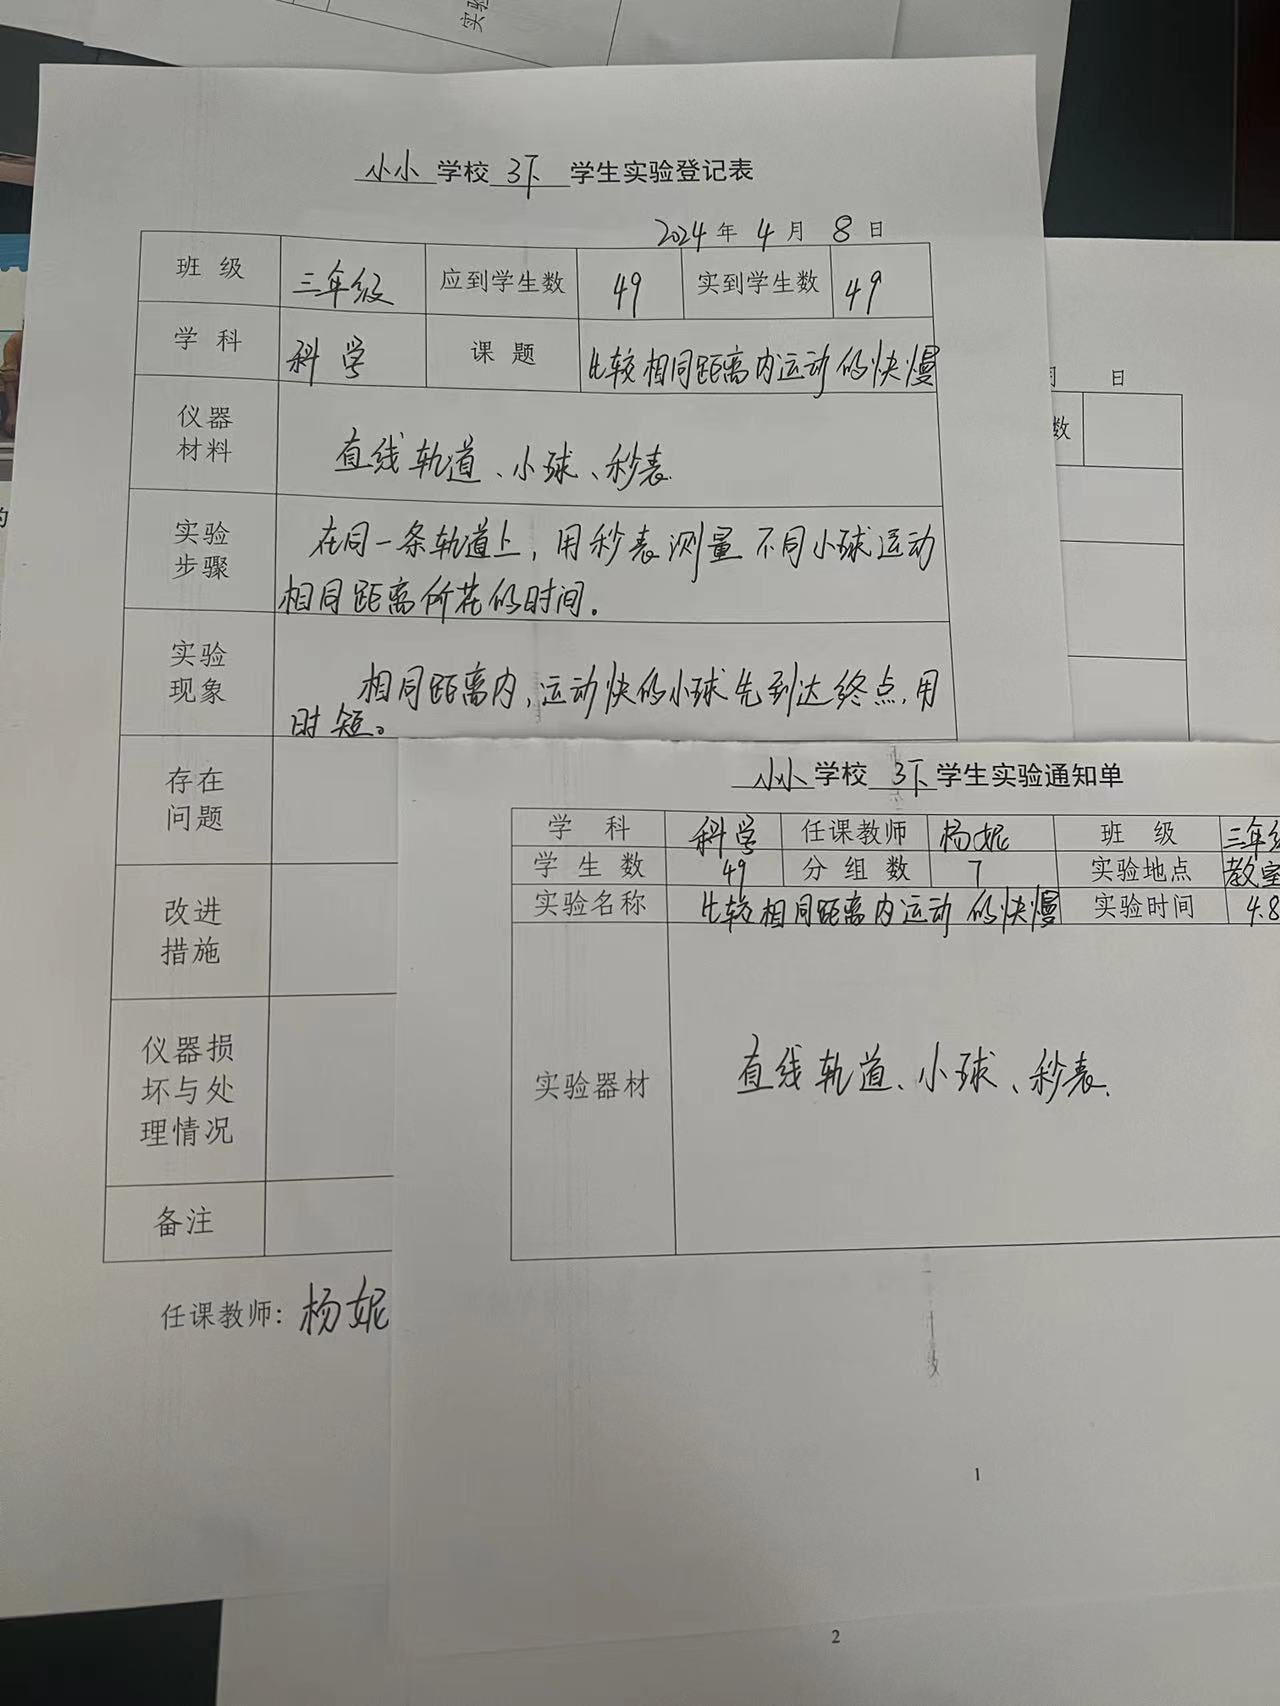 实验
小小学校 3下 学生实验登记表
2024年4月8日
班级 三年级 应到学生数 49 实到学生数 49
学科 科学 课题 比较相同距离内运动的快慢
仪器材料 直线轨道、小球、秒表.
实验步骤 在同一条轨道上，用秒表测量不同小球运动
相同距离所花的时间。
实验现象 相同距离内，运动快的小球先到达终点，用
时短。
存在问题
改进措施
仪器损坏与处理情况
备注
任课教师：杨妮
月 日
数
小小学校 3下 学生实验通知单
学科 科学 任课教师 杨妮 班级 三年级
学生数 49 分组数 7 实验地点 教室
实验名称 比较相同距离内运动的快慢 实验时间 4.8
实验器材 直线轨道、小球、秒表.
1
2